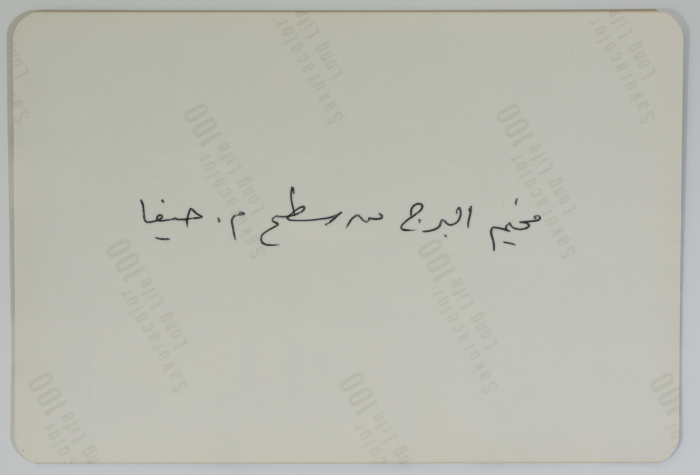 مخيم البرج من سطح م. حيفا
Sakuracolor
Long Life 100
Sakuracolor
Long Life 100
Sakuracolor
Long Life 100
Sakuracolor
Long Life 100
Sakuracolor
Long Life 100
Sakuracolor
Long Life 100